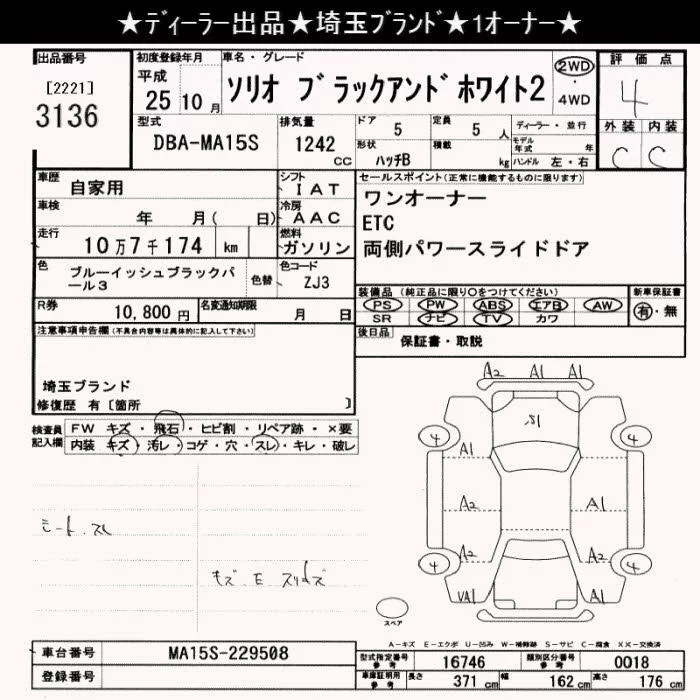 ★ディーラー出品★埼玉ブランド★1オーナー★
出品番号 [2221] 3136
初度登録年月 平成 25 年 10 月
車名・グレード ソリオ ブラックアンドホワイト2
2WD・4WD
評価点 4
型式 DBA-MA15S
排気量 1242 CC
ドア 5 形状 ハッチB
定員 5 人 積載 kg
ディーラー・並行
モデル年式 年
ハンドル 左・右
外装 C 内装 C
車歴 自家用
シフト IAT
車検 年 月( 日)
冷房 AAC
走行 10万7千174 km
燃料 ガソリン
色 ブルーイッシュブラックパール3 色替
色コード ZJ3
R券 10,800 円
名変通知期限 月 日
セールスポイント(正常に機能するものに限ります)
ワンオーナー
ETC
両側パワースライドドア
装備品(純正品に限り○をつけてください)
PS PW ABS エアB AW
SR ナビ TV カワ
新車保証書 有・無
後日品 保証書・取説
注意事項申告欄(不具合内容等は具体的に記入して下さい)
埼玉ブランド
修復歴 有〔箇所 〕
検査員記入欄
FW キズ・飛石・ヒビ割・リペア跡・×要
内装 キズ・汚レ・コゲ・穴・スレ・キレ・破レ
シート.スレ
キズ E スリキズ
A2 A1 A1
4 4
A1
A2 A1
A2 A2
4 4
VA1 A1
スペア
A−キズ E−エクボ U−凹み W−補修跡 S−サビ C−腐食 XX−交換済
車台番号 MA15S-229508
登録番号
型式指定番号 参考 16746
類別区分番号 参考 0018
車庫証明用 参考 長さ 371 cm 幅 162 cm 高さ 176 cm